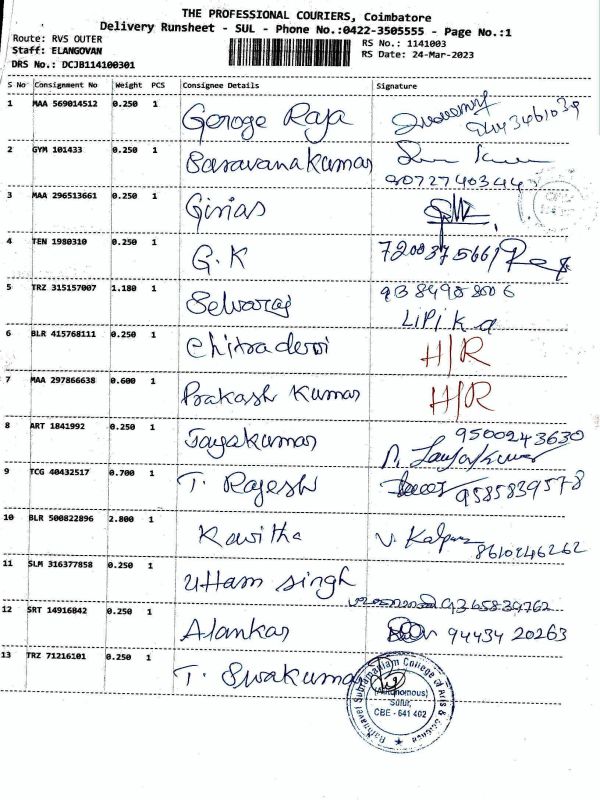 THE PROFESSIONAL COURIERS, Coimbatore
Delivery Runsheet - SUL - Phone No.:0422-3505555 - Page No.:1
Route: RVS OUTER
RS No.: 1141003
Staff: ELANGOVAN
RS Date: 24-Mar-2023
DRS No.: DCJB114100301
S No Consignment No Weight PCS Consignee Details Signature
1 MAA 569014512 0.250 1 Geroge Raja
2 GYM 101433 0.250 1 Saravanakumar
9072740344
3 MAA 296513661 0.250 1 Girias
4 TEN 1980310 0.250 1 G.K 7200375661
5 TRZ 315157007 1.180 1 Selvaraj
LIPIKA
6 BLR 415768111 0.250 1 Chitradevi H/R
7 MAA 297866638 0.600 1 Prakash Kumar H/R
8 ART 1841992 0.250 1 Jayakumar 9500243630
9 TCG 40432517 0.700 1 T. Rajesh 9585839578
10 BLR 500822896 2.800 1 Kavitha V. Kalpana 8610246262
11 SLM 316377858 0.250 1 Uttam Singh
9365839762
12 SRT 14916842 0.250 1 Alankar 94434 20263
13 TRZ 71216101 0.250 1 T. Sivakumar
Rathnavel Subramaniam College of Arts & Science
(Autonomous)
Sulur,
CBE - 641 402